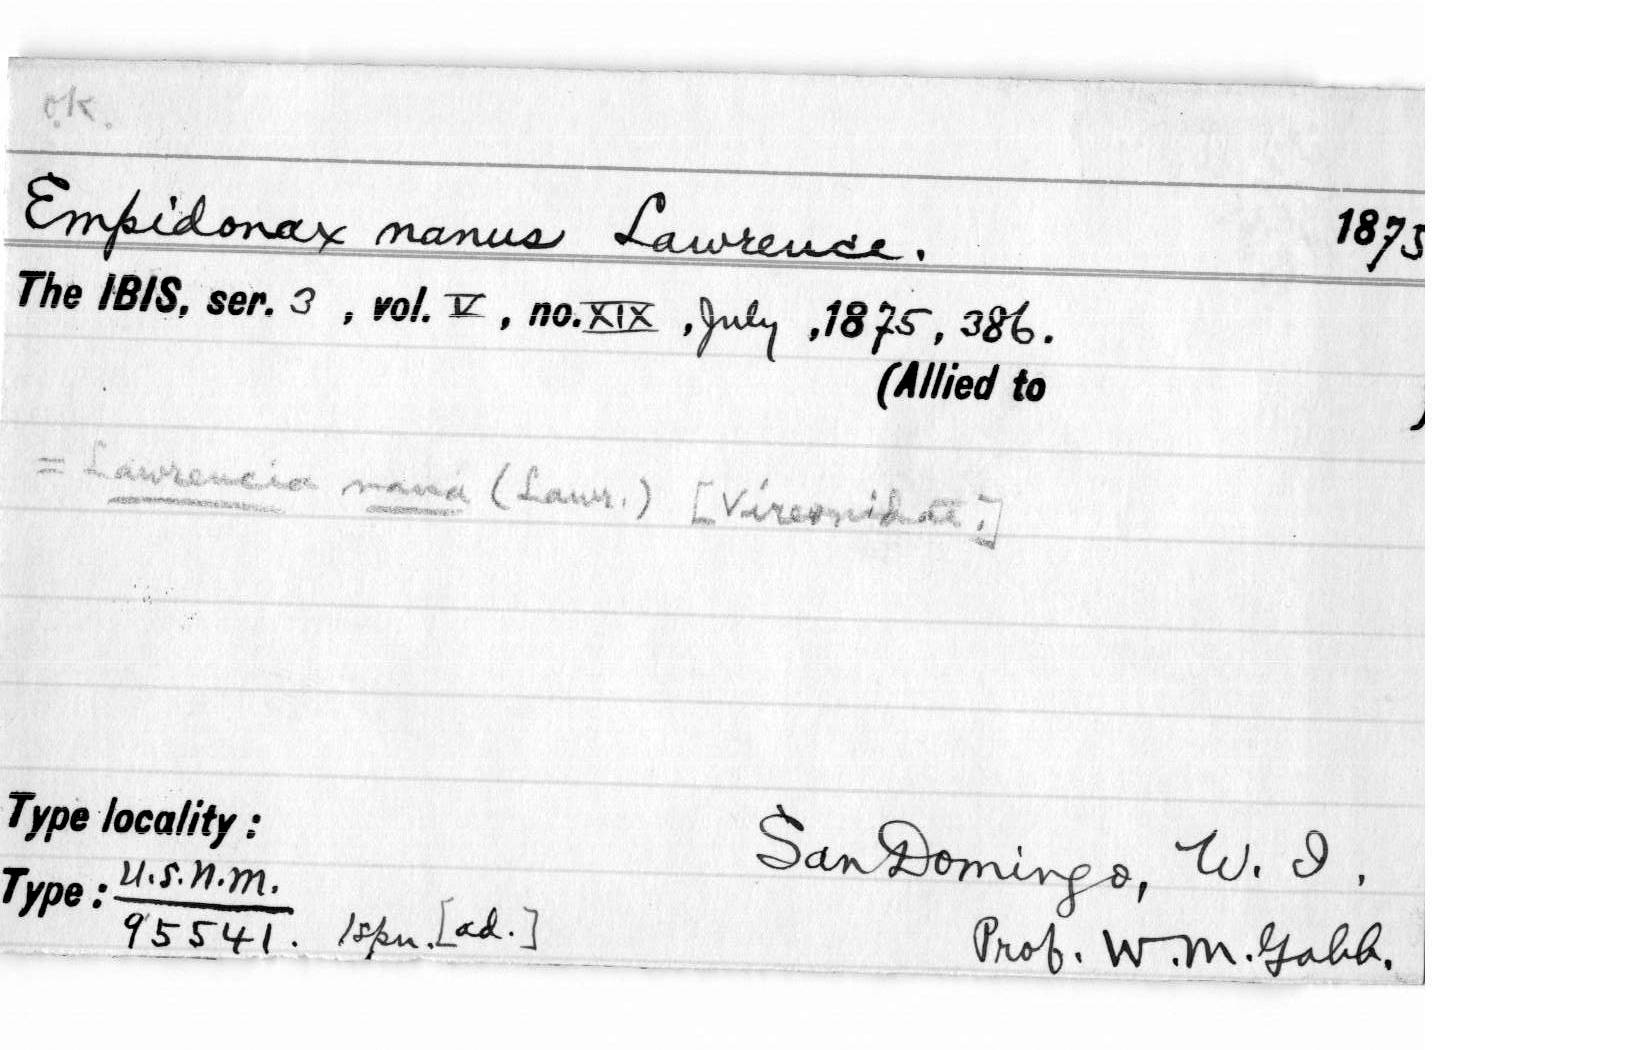 o.k.
Empidonax nanus Lawrence. 1875
The IBIS, ser. 3, vol. V, no. XIX, July, 1875, 386.
(Allied to )
= Lawrencia nana (Lawr.) [Vireonidae.]
Type locality: San Domingo, W. I.
Type: U.S.N.M. 95541. 1 spn. [ad.] Prof. W. M. Gabb.